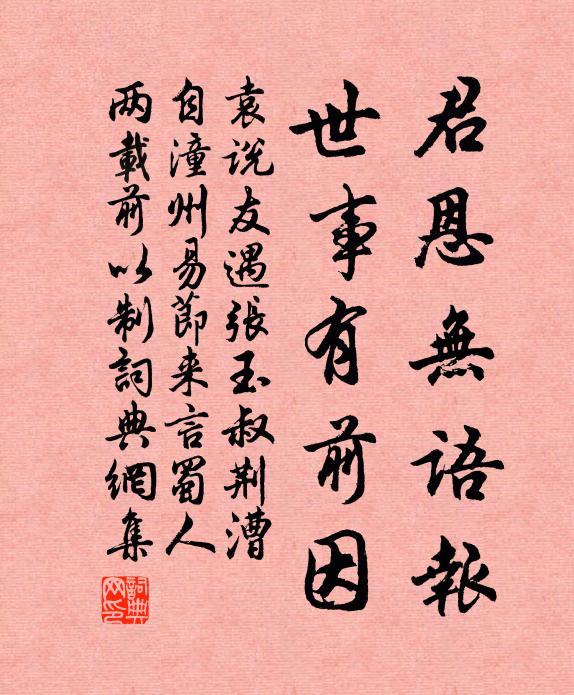 君恩無語報
世事有前因
袁说友遇張玉叔荆漕
自潼州易節来言蜀人
两載前以制詞典網集
詞典
网印